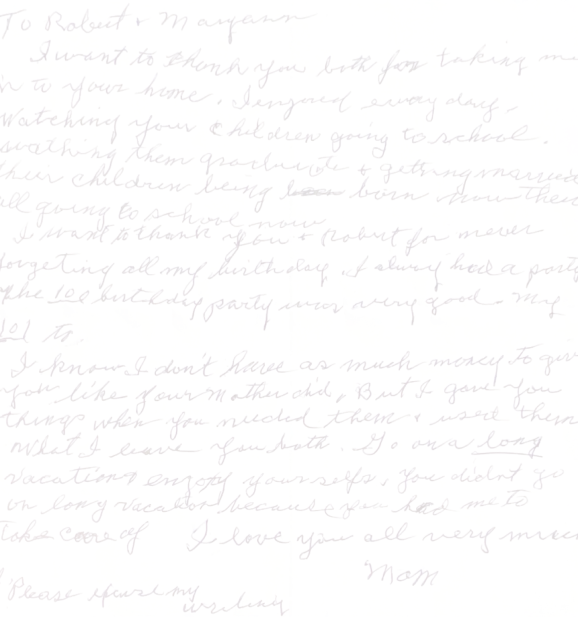 To Robert + Maryann
I want to thank you both for taking me
in to your home. I enjoyed every day,
Watching your children going to school.
wathing them graduate + getting married
their children being born now their
all going to school now
I want to thank you + Robert for never
forgeting all my birthday. I alway had a party
The 100 birthday party was very good. My
101 to.
I know I don't have as much money to give
you like your Mother did, But I gave you
things when you needed them + used them
What I leave you both. Go on a long
vacations enjoy yourselfs, you didnt go
on long vacation because you had me to
take care of I love you all very much
Mom
Please excuse my
writing